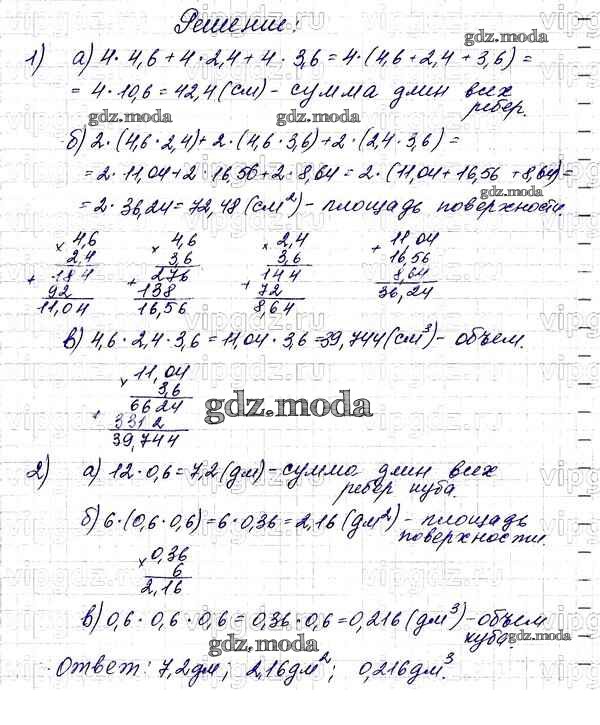 Решение:
1) а) 4 · 4,6 + 4 · 2,4 + 4 · 3,6 = 4 · (4,6 + 2,4 + 3,6) =
= 4 · 10,6 = 42,4 (см) - сумма длин всех
ребер.
б) 2 · (4,6 · 2,4) + 2 · (4,6 · 3,6) + 2 · (2,4 · 3,6) =
= 2 · 11,04 + 2 · 16,56 + 2 · 8,64 = 2 · (11,04 + 16,56 + 8,64) =
= 2 · 36,24 = 72,48 (см²) - площадь поверхности.
× 4,6 × 4,6 × 2,4 + 11,04
2,4 3,6 3,6 16,56
+ 184 + 276 + 144 8,64
92 138 72 36,24
11,04 16,56 8,64
в) 4,6 · 2,4 · 3,6 = 11,04 · 3,6 = 39,744 (см³) - объем.
× 11,04
3,6
+ 6624
3312
39,744
2) а) 12 · 0,6 = 7,2 (дм) - сумма длин всех
ребер куба.
б) 6 · (0,6 · 0,6) = 6 · 0,36 = 2,16 (дм²) - площадь
поверхности.
× 0,36
6
2,16
в) 0,6 · 0,6 · 0,6 = 0,36 · 0,6 = 0,216 (дм³) - объем
куба.
Ответ: 7,2 дм; 2,16 дм²; 0,216 дм³.
gdz.moda
gdz.moda
gdz.moda
gdz.moda
gdz.moda
gdz.moda
gdz.moda
vipgdz.ru